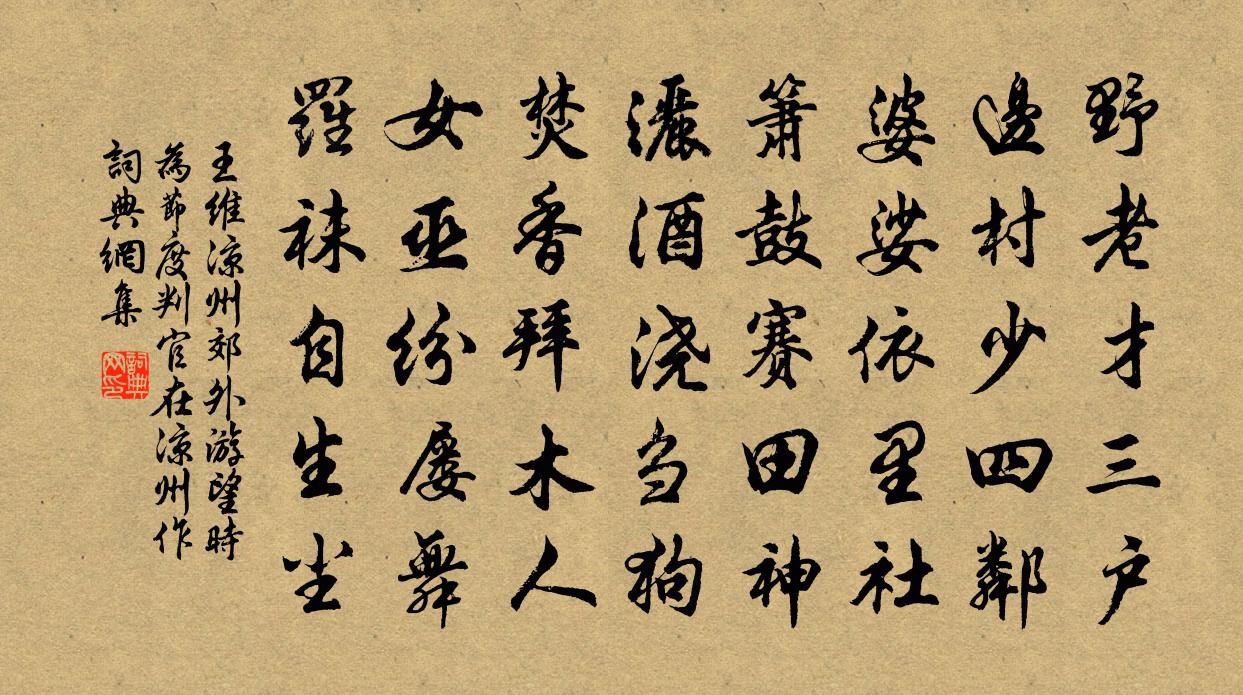 野老才三户
邊村少四鄰
婆娑依里社
簫鼓賽田神
灑酒浇刍狗
焚香拜木人
女巫紛屢舞
羅袜自生尘
王維涼州郊外游望時
為節度判官在涼州作
詞典網集
詞典
网印